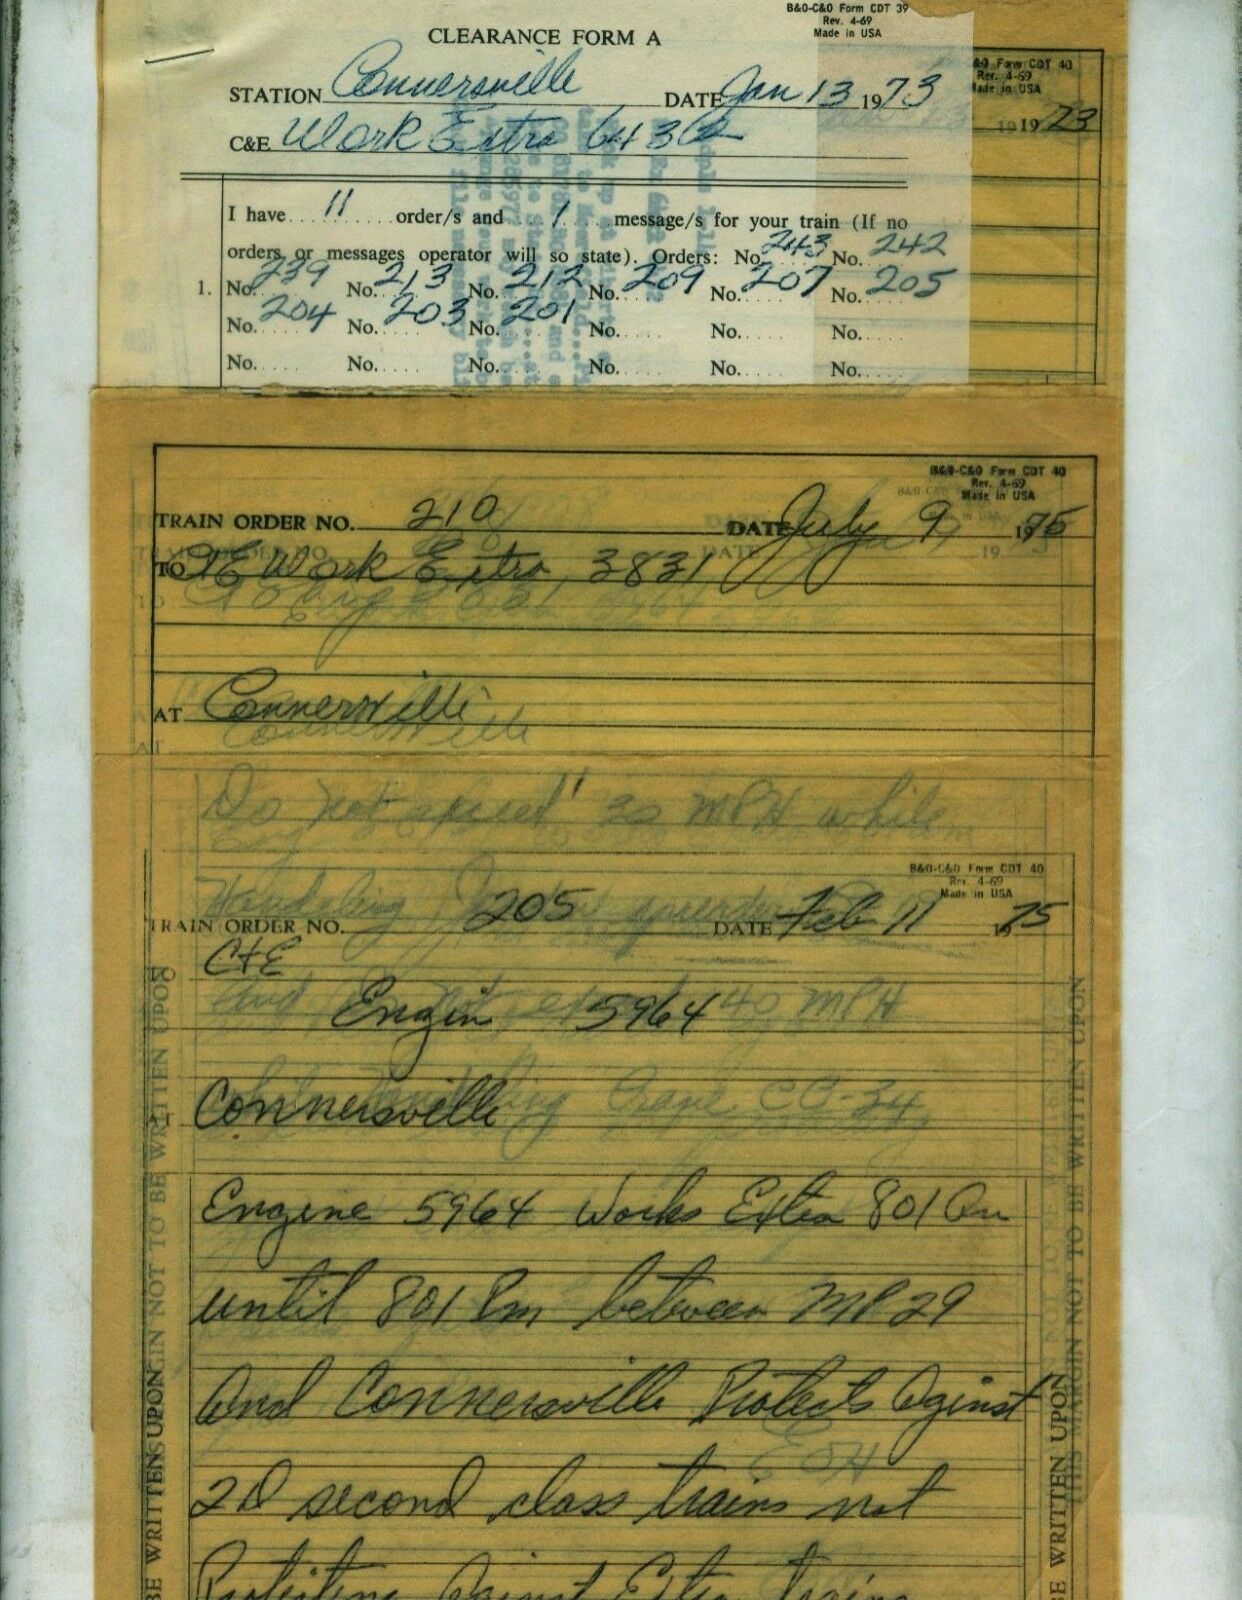 B&O-C&O Form CDT 39
Rev. 4-69
Made in USA
CLEARANCE FORM A
STATION Connersville DATE Jan 13 1973
C&E Work Extra 6436
I have 11 order/s and 1 message/s for your train (If no
orders or messages operator will so state). Orders: No. 243 No. 242
1. No. 239 No. 213 No. 212 No. 209 No. 207 No. 205
No. 204 No. 203 No. 201 No. No. No.
No. No. No. No. No. No.
Form CDT 40
Rev. 4-69
Made in USA
1973
B&O-C&O Form CDT 40
Rev. 4-69
Made in USA
TRAIN ORDER NO. 210 DATE July 9 1975
TO C&E Work Extra 3831
AT Connersville
Do not exceed 30 MPH while
Handling
B&O-C&O Form CDT 40
Rev. 4-69
Made in USA
TRAIN ORDER NO. 205 DATE Feb 11 1975
C&E
Engin 5964
40 MPH
AT Connersville
Crane CC-34
Engine 5964 Works Extra 801 Am
until 801 Pm between MP 29
And Connersville Protects Aginst
2D second class trains not
Protecting Against Extra trains
EOH
THIS MARGIN NOT TO BE WRITTEN UPON
BE WRITTEN UPON